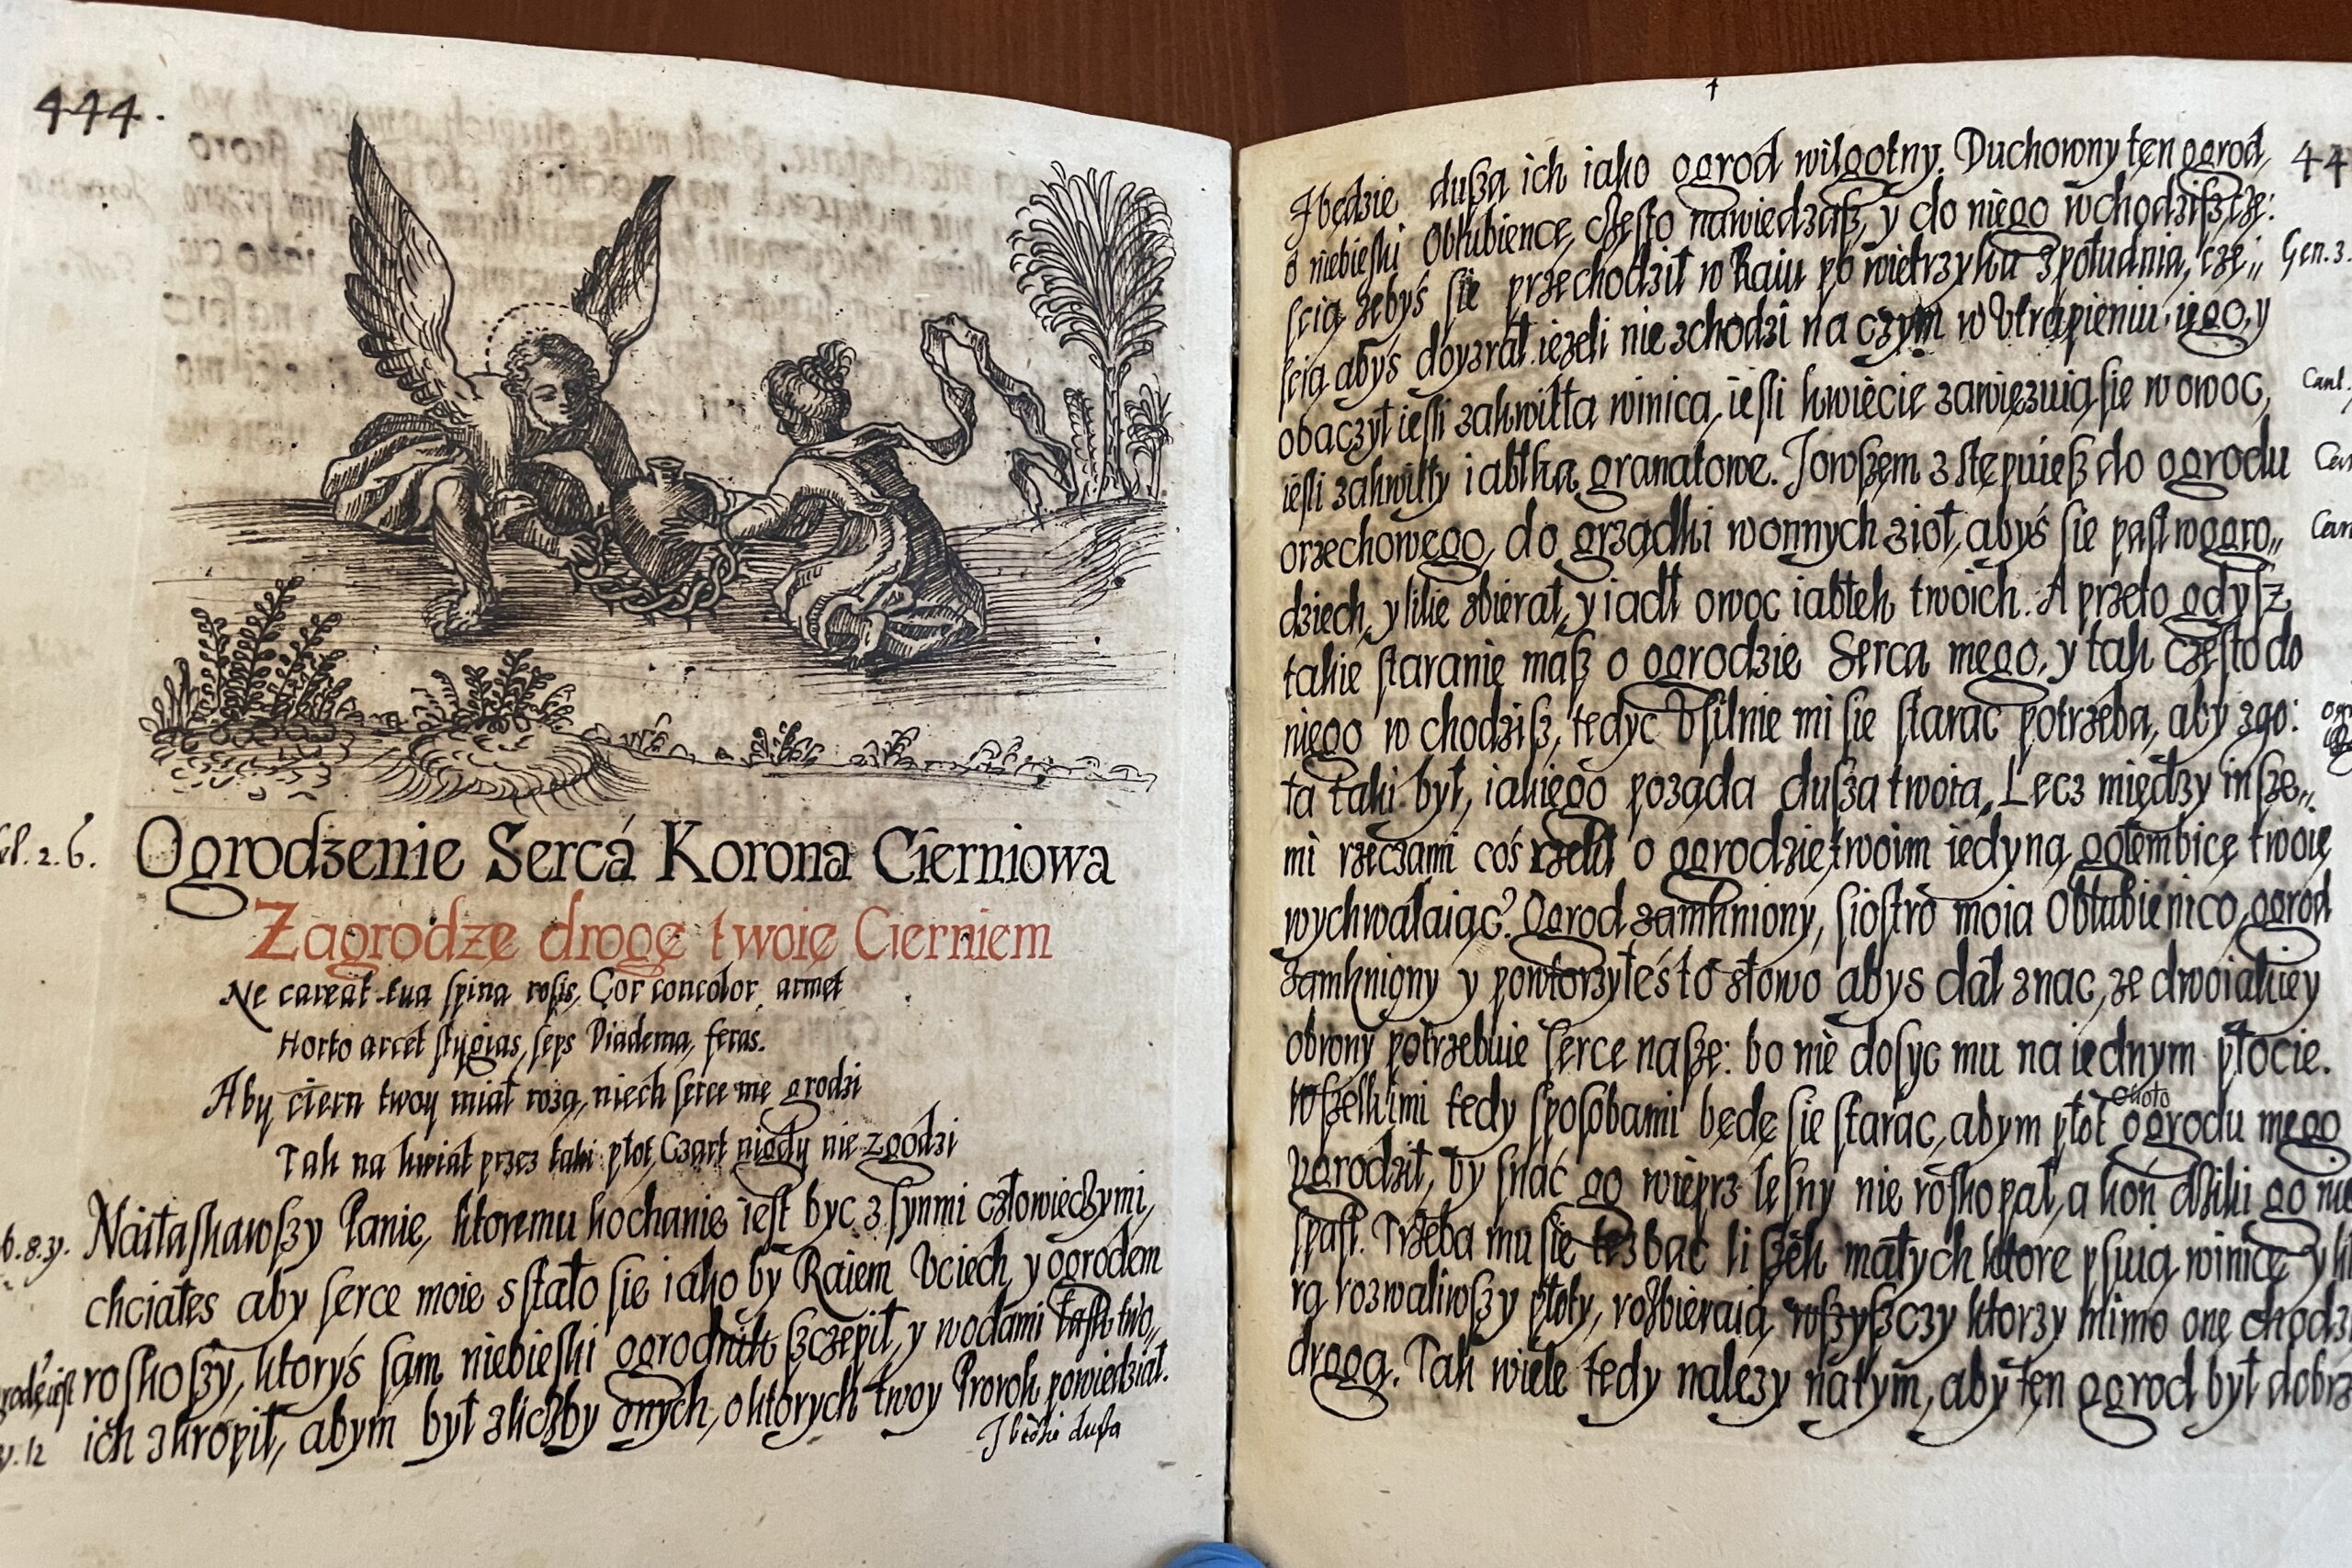 444.
Ogrodzenie Sercá Korona Cierniowa
2. 6.
Zagrodzę drogę twoię Cierniem
Ne careat tua spina rosis, Cor concolor armet
Horto arcet stygias, seps Diadema, feras.
Aby ciern twoy miał rożą, niech serce me grodzi
Tak na kwiat przez taki płot, Czart nigdy nie zgodzi
Naiłaskawszy Panie, ktoremu kochanie iest byc z synmi człowieczymi,
8. 31.
chciałes aby serce moie sstało się iako by Raiem Vciech, y ogrodem
roskoszy, ktoryś sam niebieski ogrodnik szczepił, y wodami łaski two„
ich skropił, abym był z liczby onych, o ktorych twoy Prorok powiedział.
12
I będzie dusza
I będzie dusza ich iako ogrod wilgotny. Duchowny ten ogrod,
44
o niebieski Oblubience, często nawiedzasz, y do niego wchodzisz
Gen. 3.
scią żebyś się przechodził w Raiu po wietrzyku z południa, czę„
scią abyś doyzrał ieżeli nie zchodzi na czym w Vtrapieniu iego, y
obaczył iesli zakwitła winica, iesli kwiecie zawięzuią się w owoc,
Cant.
iesli zakwitły iabłka granatowe. Iowszem zstępuiesz do ogrodu
orzechowego, do grządki wonnych zioł, abyś się pasł w ogro„
dziech, y lilie zbierał, y iadł owoc iabłek twoich. A przeto gdysz
takie staranie masz o ogrodzie Serca mego, y tak często do
niego w chodzisz, tedyc Vsilnie mi się starac potrzeba, aby zgo:
ta taki był, iakiego pożąda dusza twoia, Lecz między insze„
mi rzeczami coś rzekł o ogrodzie twoim iedyną gołembicę twoię
wychwalaiąc? Ogrod zamkniony, siostro moia Oblubienico, ogrod
zamkniony y powtorzyłeś to słowo abys dał znac, że dwoiakiey
obrony potrzebuie serce nasze: bo nie dosyc mu na iednym płocie.
Wszelkimi tedy sposobami będę się starac, abym płot około ogrodu mego
vgrodził, by snać go wieprz lesny nie roskopał, a koń dziki go nie
spasł. Trzeba mu się tez bac liszek małych ktore psuią winicę y
rą rozwaliwszy płoty, rozbieraią wszyscy ktorzy mimo onę chodzą
drogą. Tak wiele tedy należy natym, aby ten ogrod był dobrze